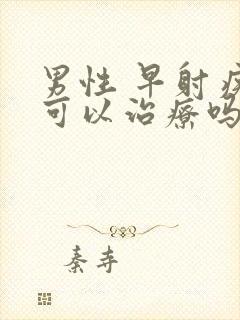 男性早射疾
可以治療吗
秦寺